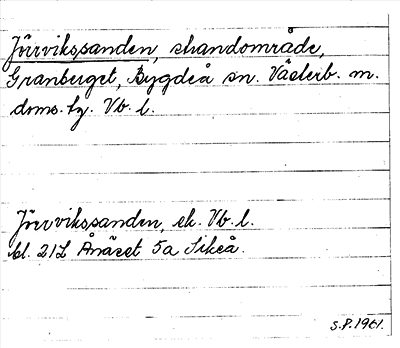 Jürvikssanden, strandområde,
Granberget, Bygdeå sn. Västerb. m.
doms. fg. Vb. l.
Jürvikssanden, ek. Vb. l.
bl. 21L Ånäset 5a Sikeå.
S.P. 1961.